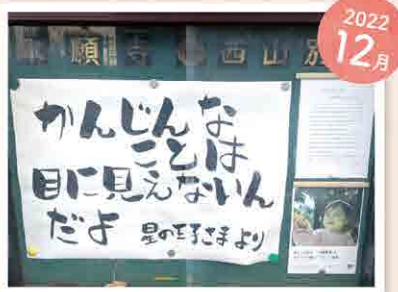 2022
12月
願寺 西山別
かんじんな
ことは
目に見えないん
だよ 星の王子さまより